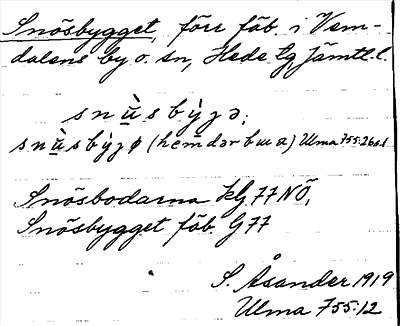 Snösbygget, förr fäb. i Vem-
dalens by o. sn, Hede tg Jämtl. l.
snùsbỳgə;
snùsbỳgø (hemdər bɯa) Ulma 755:26 s.1
Snösbodarna kg 77 NÖ,
Snösbygget fäb. G 77
S. Åsander 1919
Ulma 755:12